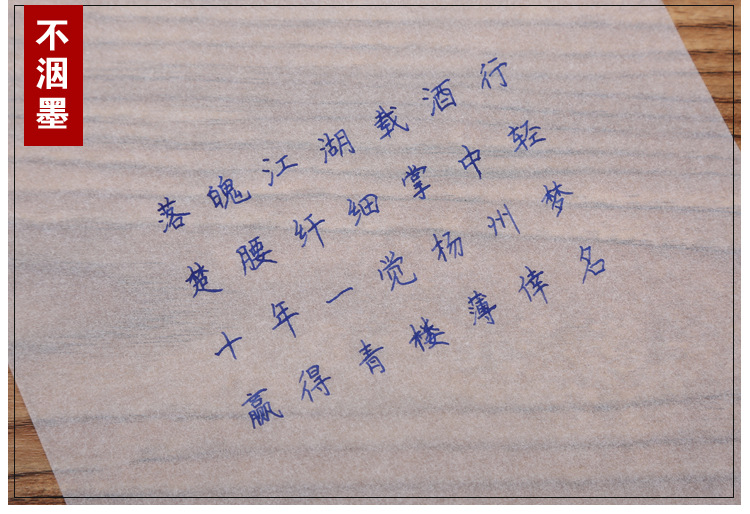 不洇墨
落魄江湖载酒行
楚腰纤细掌中轻
十年一觉杨州梦
赢得青楼薄倖名